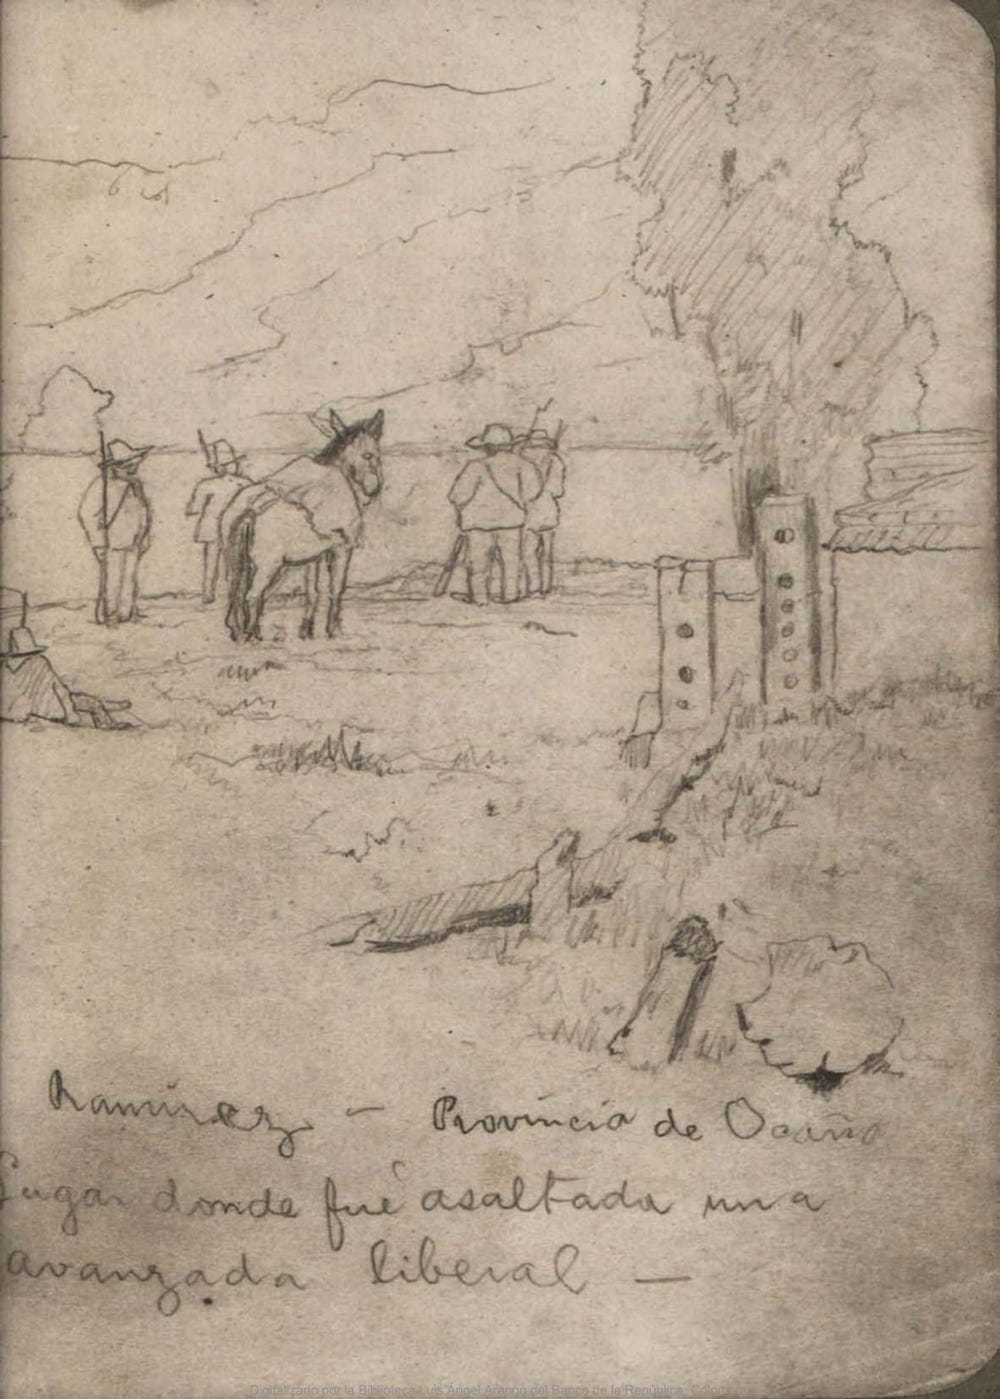 Ramírez — Provincia de Ocaña
Lugar donde fué asaltada una
avanzada liberal —
Digitalizado por la Biblioteca Luis Ángel Arango del Banco de la República, Colombia